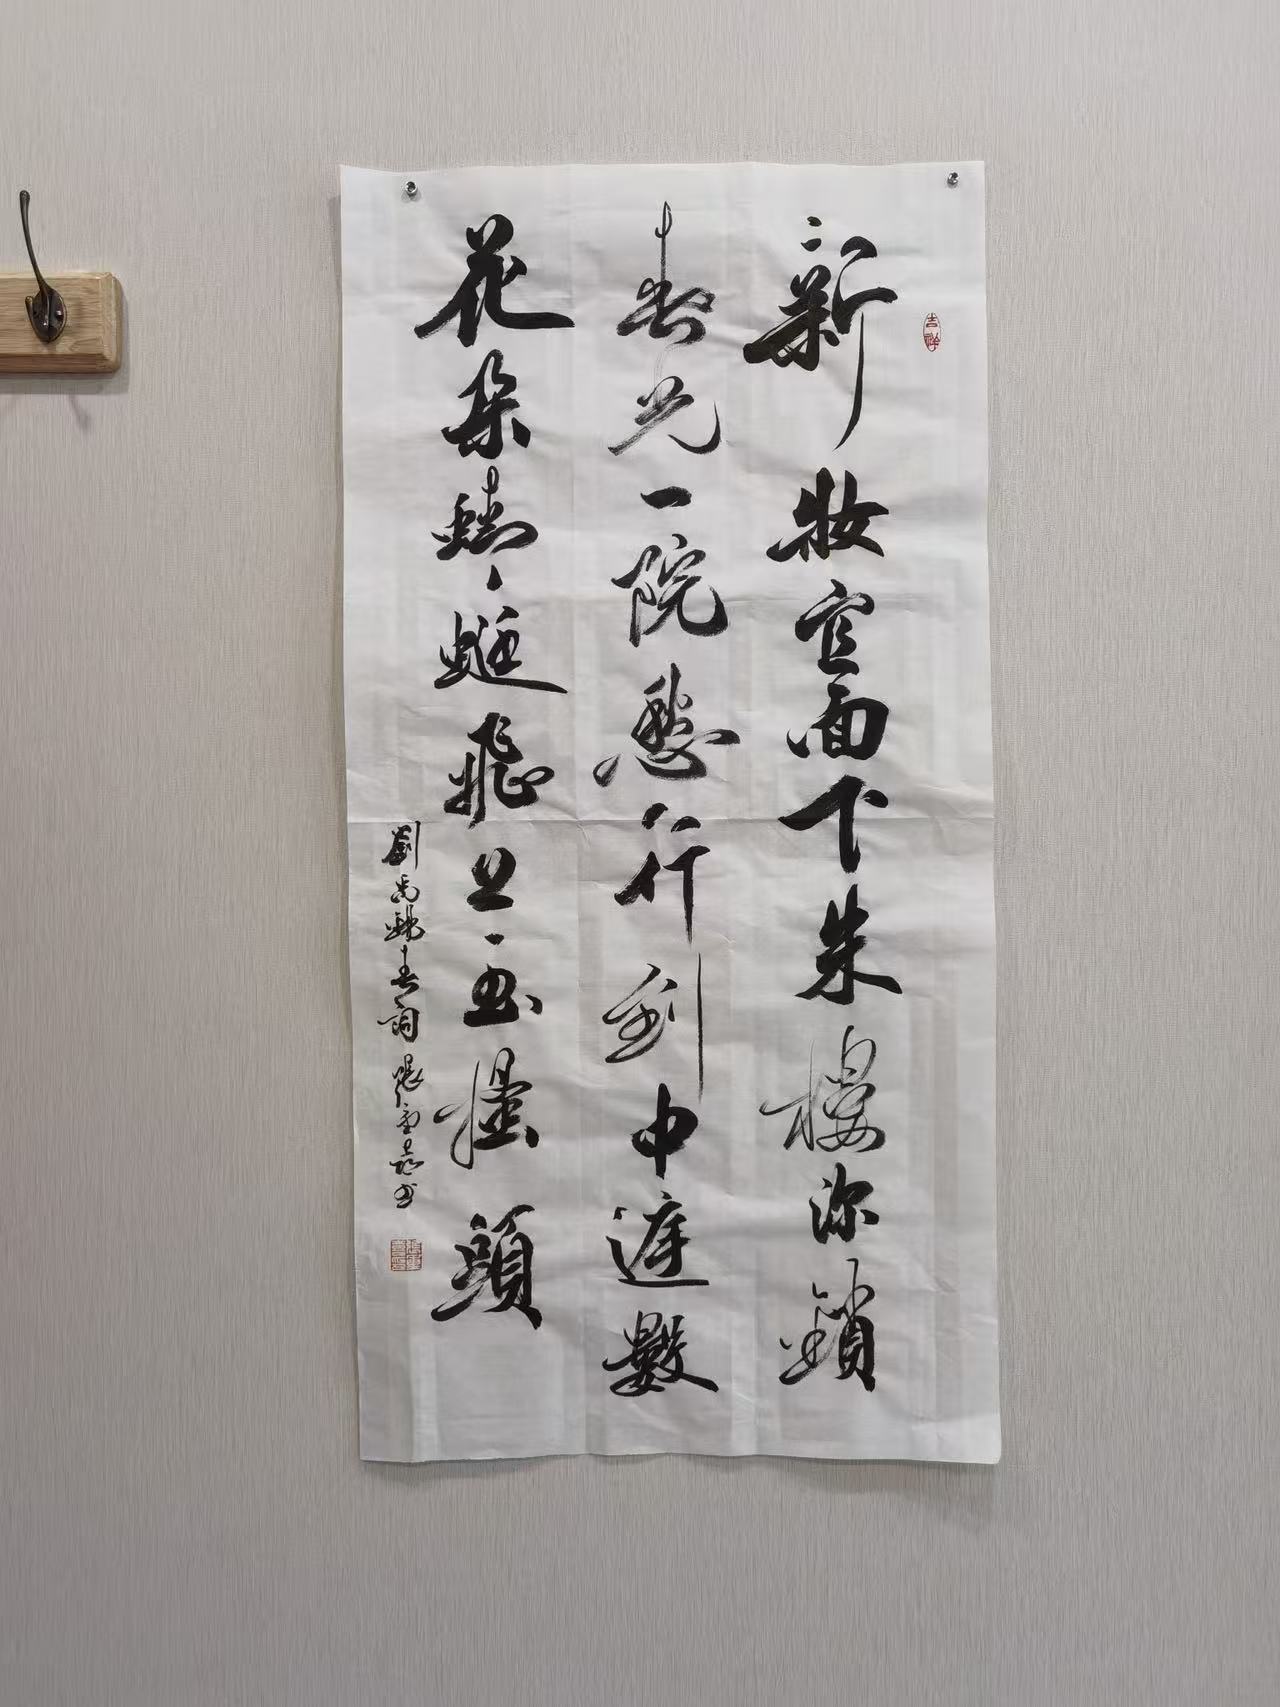 吉祥
新妝宜面下朱樓深鎖
春光一院愁行到中庭數
花朵蜻蜓飛上玉搔頭
劉禹錫春詞